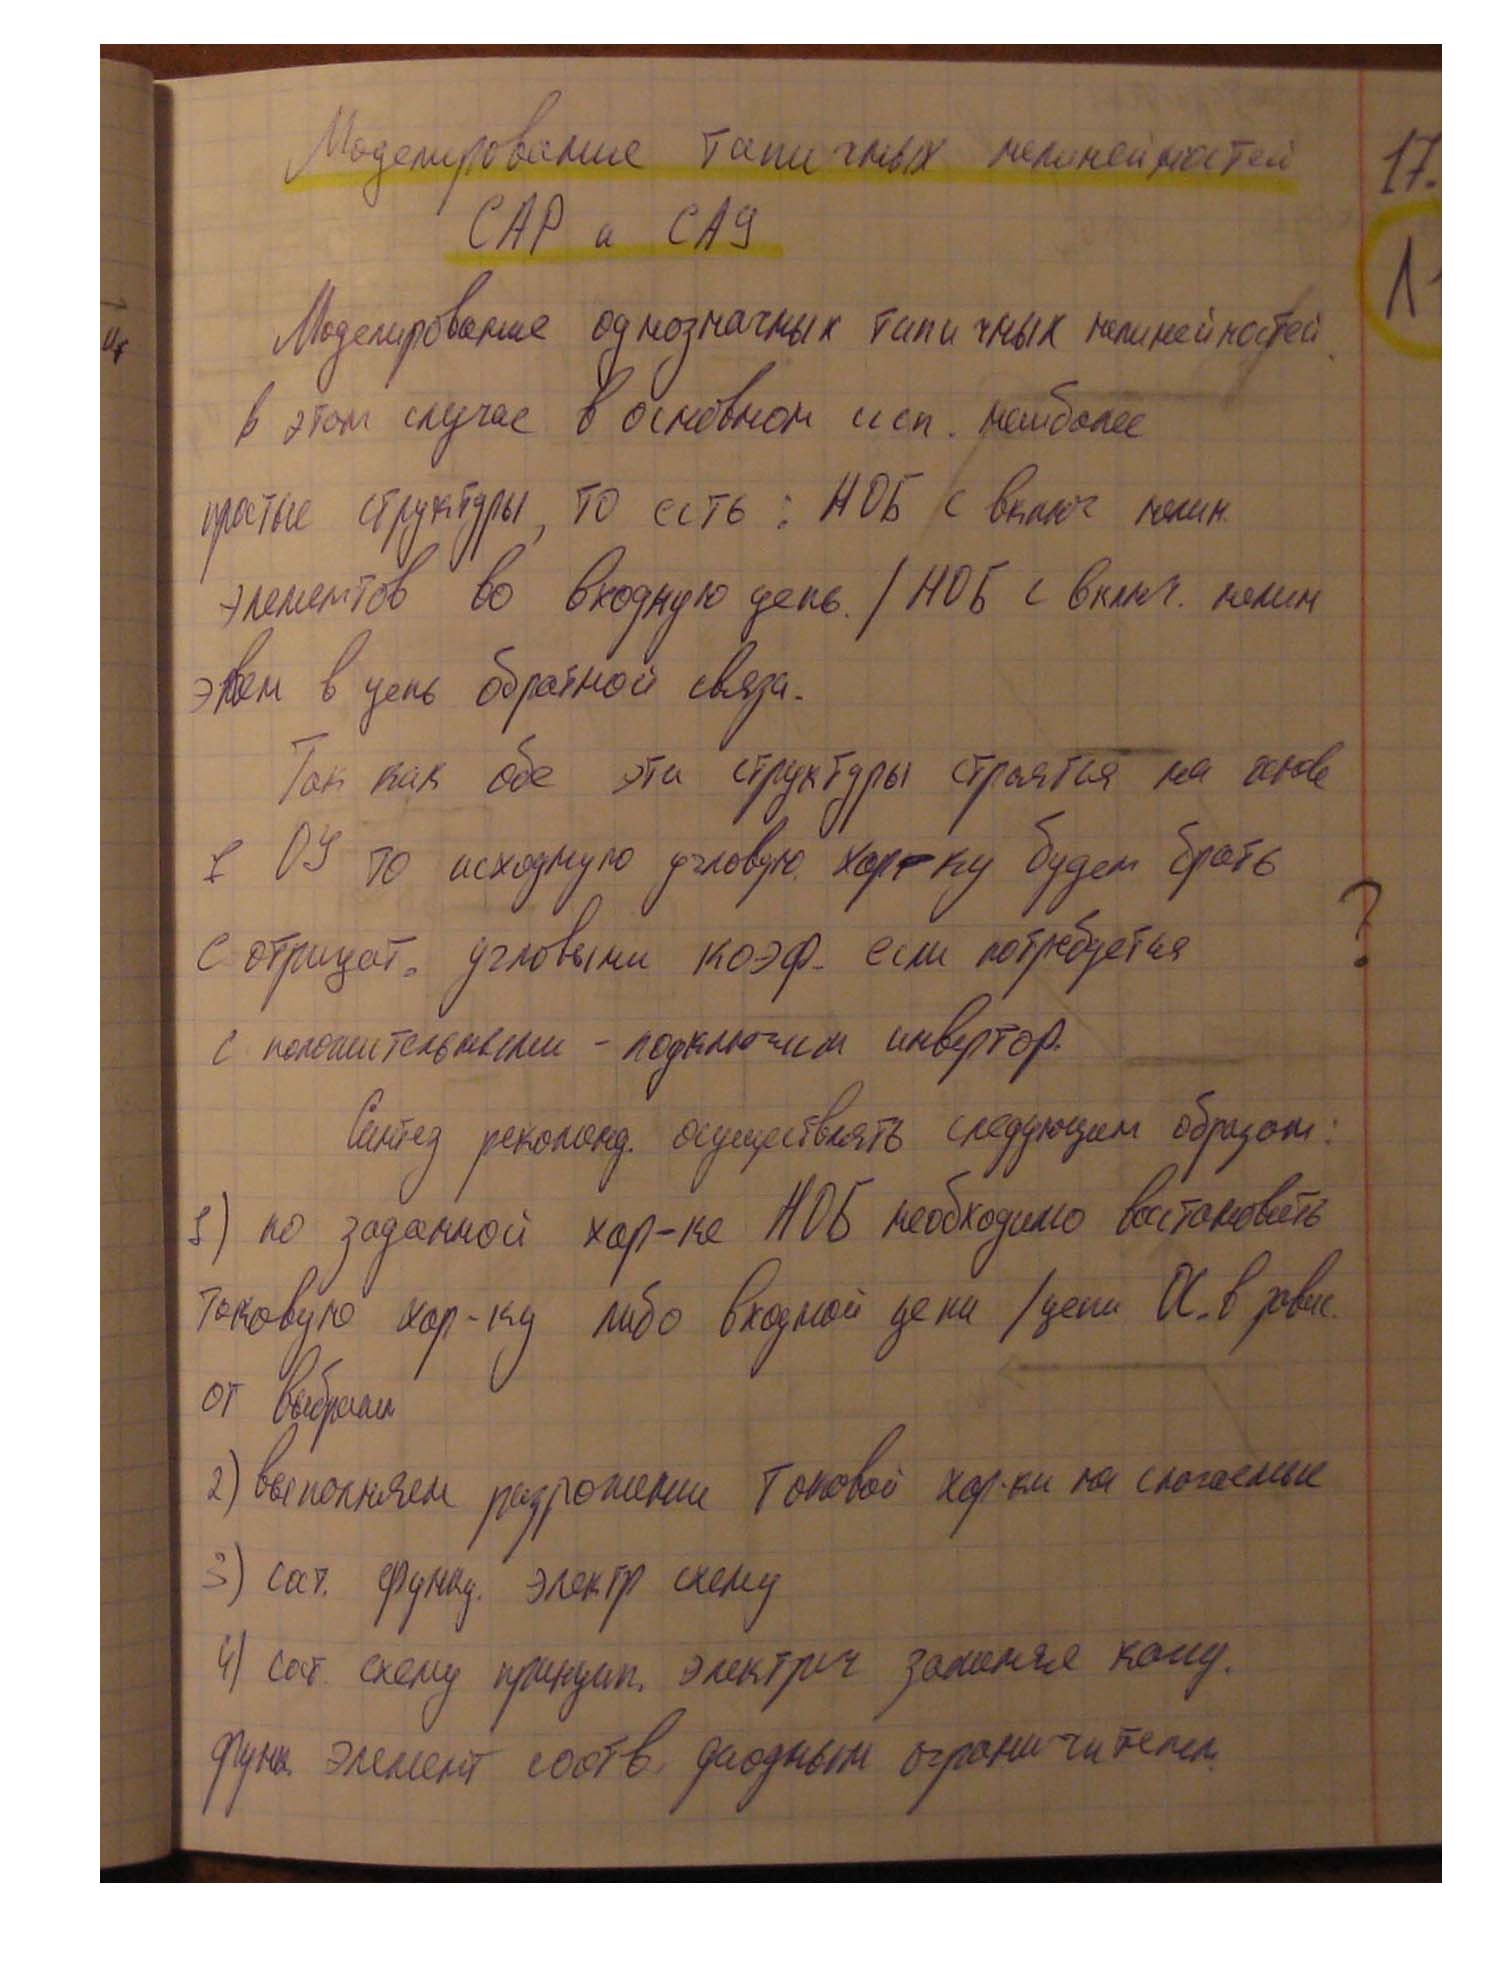 Моделирование типичных нелинейностей
САР и САУ
17.
Моделирование однозначных типичных нелинейностей.
В этом случае в основном исп. наиболее
простые структуры, то есть: НОБ с включ нелин.
элементов во входную цепь. / НОБ с включ. нелин
элем в цепь обратной связи.
Так как обе эти структуры строятся на основе
1 ОУ то исходную угловую хар-ку будем брать
с отрицат. угловыми коэф. если потребуется
?
с положительными - подключим инвертор.
Синтез рекоменд. осуществлять следующим образом:
1) по заданной хар-ке НОБ необходимо востановить
токовую хар-ку либо входной цепи / цепи ОС. в завис.
от выбран
2) выполняем разложение токовой хар-ки на слагаемые
3) сост. функц. электр схему
4) сост. схему принцип. электрич заменяя кажд.
функ. элемент соотв. диодным ограничителем.